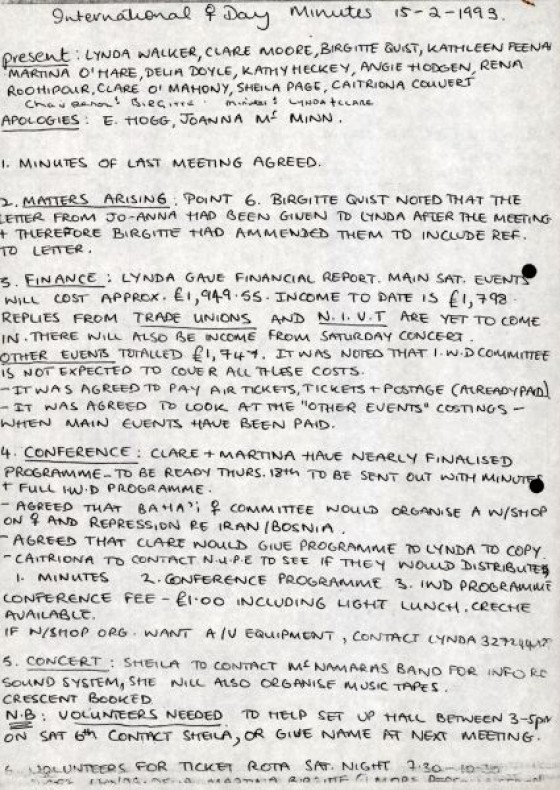 International ♀ Day Minutes 15-2-1993.
present: LYNDA WALKER, CLARE MOORE, BIRGITTE QUIST, KATHLEEN FEENA
MARTINA O'HARE, DELIA DOYLE, KATHY HECKEY, ANGIE HODGEN, RENA
ROOHIPOUR, CLARE O'MAHONY, SHEILA PAGE, CAITRIONA COLVERT
Birgitte. minutes: LYNDA + CLARE
APOLOGIES: E. HOGG, JOANNA Mc MINN.
1. MINUTES OF LAST MEETING AGREED.
2. MATTERS ARISING: POINT 6. BIRGITTE QUIST NOTED THAT THE
LETTER FROM JO-ANNA HAD BEEN GIVEN TO LYNDA AFTER THE MEETING
+ THEREFORE BIRGITTE HAD AMMENDED THEM TO INCLUDE REF.
TO LETTER.
3. FINANCE: LYNDA GAVE FINANCIAL REPORT. MAIN SAT. EVENTS
WILL COST APPROX. £1,949.55. INCOME TO DATE IS £1,798.
REPLIES FROM TRADE UNIONS AND N.I.V.T ARE YET TO COME
IN. THERE WILL ALSO BE INCOME FROM SATURDAY CONCERT.
OTHER EVENTS TOTALLED £1,747. IT WAS NOTED THAT I.W.D COMMITTEE
IS NOT EXPECTED TO COVER ALL THESE COSTS.
- IT WAS AGREED TO PAY AIR TICKETS, TICKETS + POSTAGE (ALREADY PAID)
- IT WAS AGREED TO LOOK AT THE "OTHER EVENTS" COSTINGS -
WHEN MAIN EVENTS HAVE BEEN PAID.
4. CONFERENCE: CLARE + MARTINA HAVE NEARLY FINALISED
PROGRAMME - TO BE READY THURS. 18th TO BE SENT OUT WITH MINUTES
+ FULL IW.D PROGRAMME.
- AGREED THAT BAHA'i ♀ COMMITTEE WOULD ORGANISE A W/SHOP
ON ♀ AND REPRESSION RE IRAN/BOSNIA.
- AGREED THAT CLARE WOULD GIVE PROGRAMME TO LYNDA TO COPY.
- CAITRIONA TO CONTACT N.U.P.E TO SEE IF THEY WOULD DISTRIBUTE
1. MINUTES 2. CONFERENCE PROGRAMME 3. IWD PROGRAMME
CONFERENCE FEE - £1.00 INCLUDING LIGHT LUNCH, CRECHE
AVAILABLE.
IF W/SHOP ORG. WANT A/V EQUIPMENT, CONTACT LYNDA
5. CONCERT: SHEILA TO CONTACT Mc NAMARAS BAND FOR INFO RE
SOUND SYSTEM, SHE WILL ALSO ORGANISE MUSIC TAPES.
CRESCENT BOOKED
N.B: VOLUNTEERS NEEDED TO HELP SET UP HALL BETWEEN 3-5pm
ON SAT 6th CONTACT SHEILA, OR GIVE NAME AT NEXT MEETING.
6. VOLUNTEERS FOR TICKET ROTA SAT. NIGHT 7:30 - 10:30